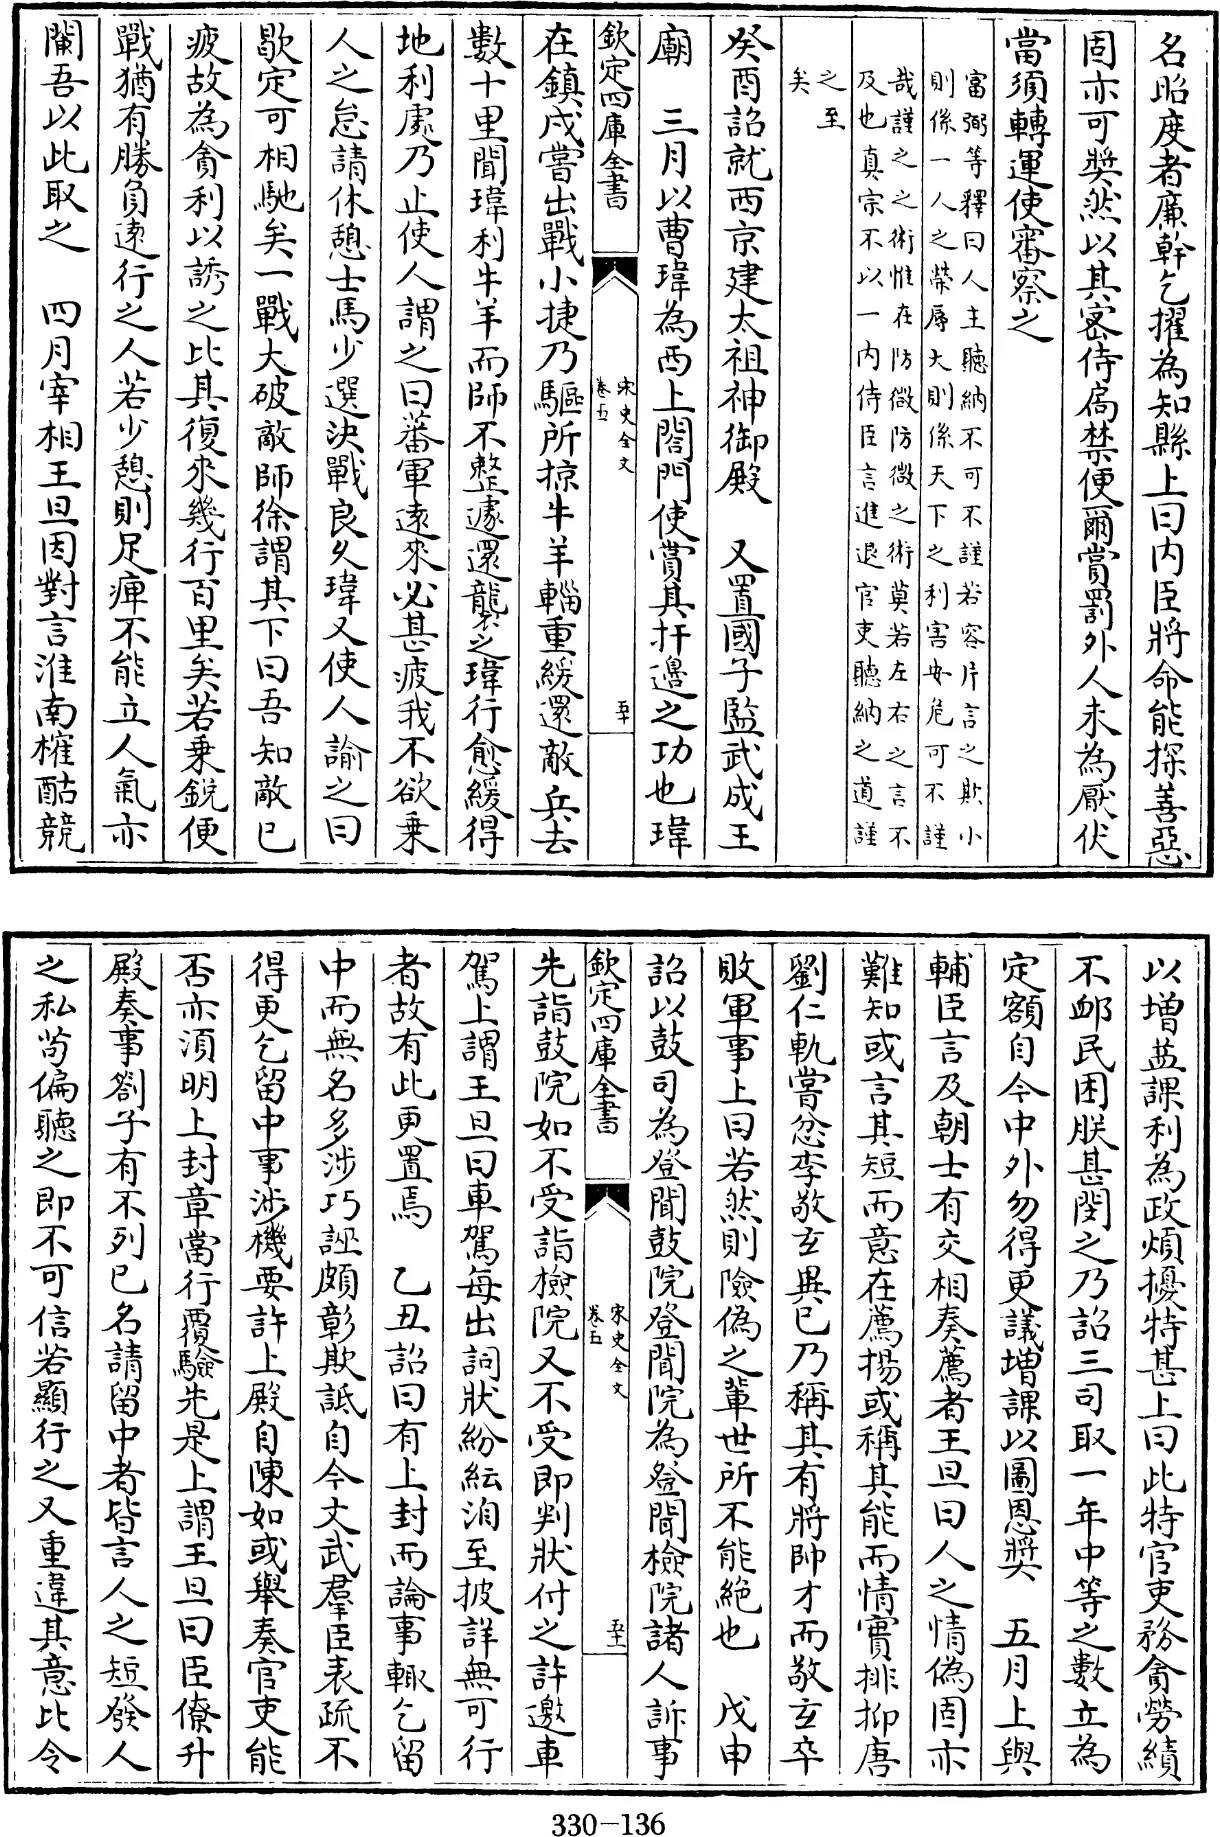 名昭度者廉幹乞擢為知縣上曰内臣將命能探善惡
固亦可奬然以其宻侍扄禁便爾賞罰外人未為厭伏
當須轉運使審察之
富弼等釋曰人主聽納不可不謹若容片言之欺小
則係一人之榮辱大則係天下之利害安危可不謹
哉謹之之術惟在防微防微之術莫若左右之言不
及也真宗不以一内侍臣言進退官吏聽納之道謹
之至
矣
癸酉詔就西京建太祖神御殿　又置國子監武成王
廟　三月以曹瑋為西上閤門使賞其扞邊之功也瑋
欽定四庫全書
宋史全文
卷五
五十
在鎮戍嘗出戰小捷乃驅所掠牛羊輜重緩還敵兵去
數十里聞瑋利牛羊而師不整遽還襲之瑋行愈緩得
地利處乃止使人謂之曰蕃軍逺來必甚疲我不欲乗
人之怠請休憩士馬少選决戰良久瑋又使人諭之曰
歇定可相馳矣一戰大破敵師徐謂其下曰吾知敵已
疲故為貪利以誘之比其復來幾行百里矣若乗鋭便
戰猶有勝負逺行之人若少憩則足痺不能立人氣亦
闌吾以此取之　四月宰相王旦因對言淮南榷酤競
以增益課利為政煩擾特甚上曰此特官吏務貪勞績
不邮民困朕甚閔之乃詔三司取一年中等之數立為
定額自今中外勿得更議增課以圖恩奬　五月上與
輔臣言及朝士有交相奏薦者王旦曰人之情偽固亦
難知或言其短而意在薦揚或稱其能而情實排抑唐
劉仁軌嘗忿李敬玄異己乃稱其有將帥才而敬玄卒
敗軍事上曰若然則險偽之輩世所不能絶也　戊申
詔以鼓司為登聞鼓院登聞院為登聞檢院諸人訴事
欽定四庫全書
宋史全文
卷五
五十一
先詣鼓院如不受詣檢院又不受即判狀付之許邀車
駕上謂王旦曰車駕每出詞狀紛紜洎至披詳無可行
者故有此更置焉　乙丑詔曰有上封而論事輙乞留
中而無名多涉巧誣頗彰欺詆自今文武羣臣表疏不
得更乞留中事涉機要許上殿自陳如或舉奏官吏能
否亦須明上封章當行覆驗先是上謂王旦曰臣僚升
殿奏事劄子有不列已名請留中者皆言人之短發人
之私茍偏聽之即不可信若顯行之又重違其意比令
330-136